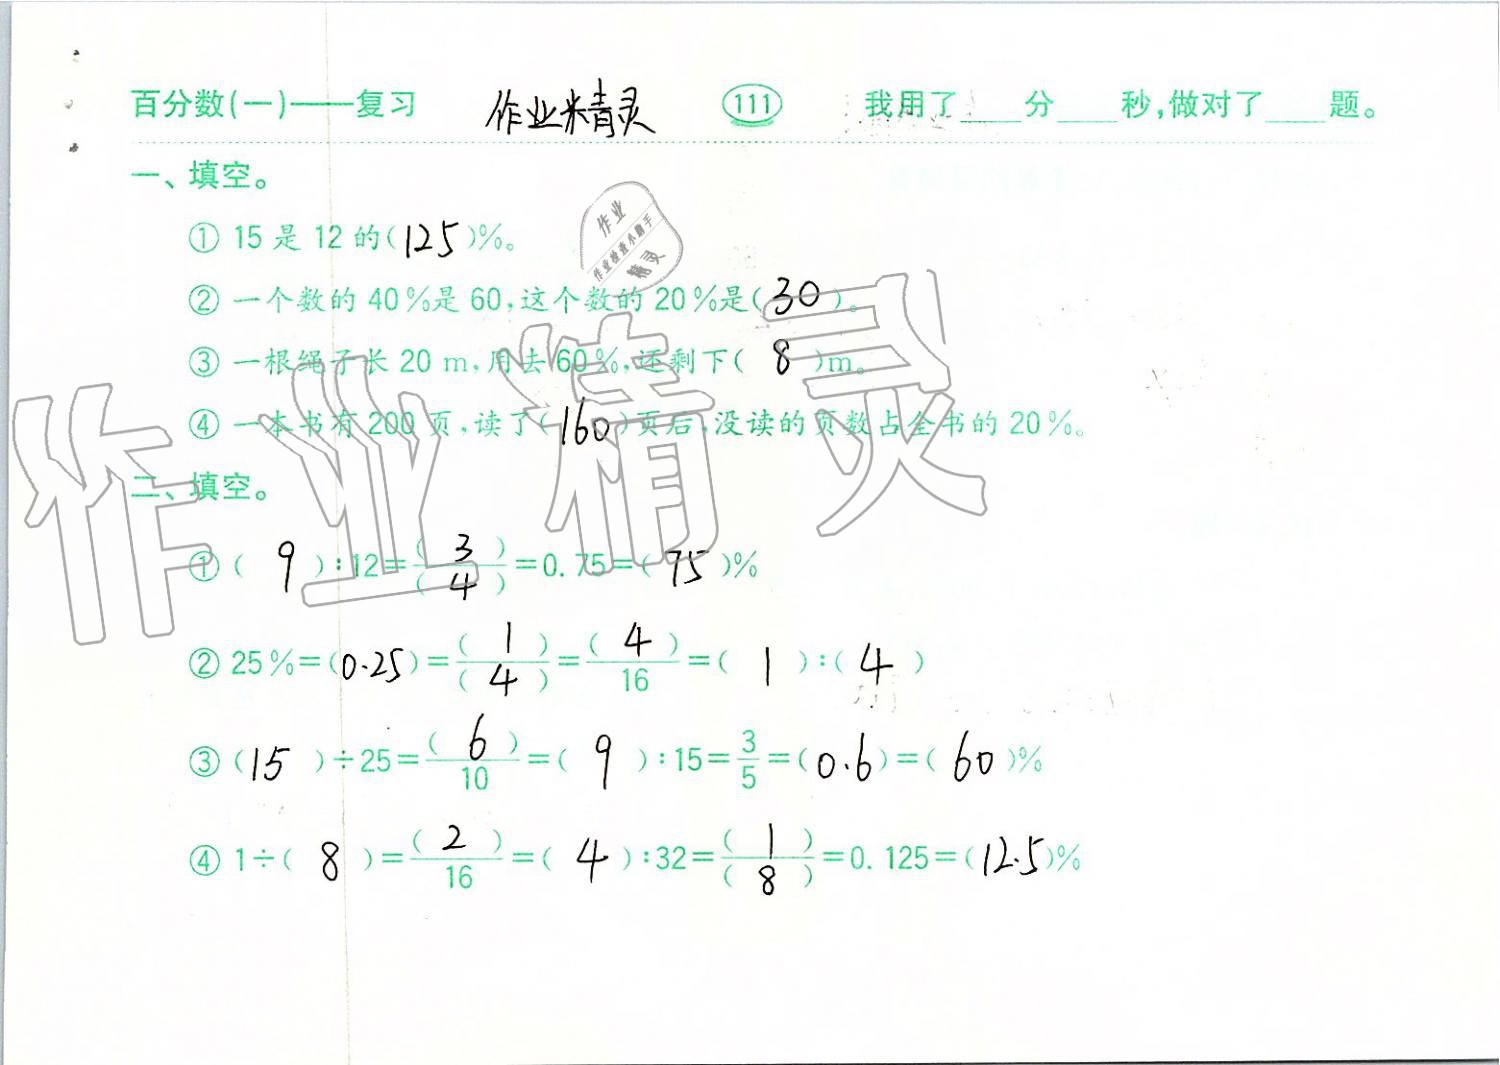 百分数(一)——复习 作业精灵 111 我用了____分____秒,做对了____题。
一、填空。
① 15是12的(125)%。
作业
作业检查小助手
精灵
② 一个数的40%是60,这个数的20%是(30)。
③ 一根绳子长20 m,用去60%,还剩下(8)m。
④ 一本书有200页,读了(160)页后,没读的页数占全书的20%。
作业精灵
二、填空。
① (9):12=(3)/(4)=0.75=(75)%
② 25%=(0.25)=(1)/(4)=(4)/16=(1):(4)
③ (15)÷25=(6)/10=(9):15=3/5=(0.6)=(60)%
④ 1÷(8)=(2)/16=(4):32=(1)/(8)=0.125=(12.5)%